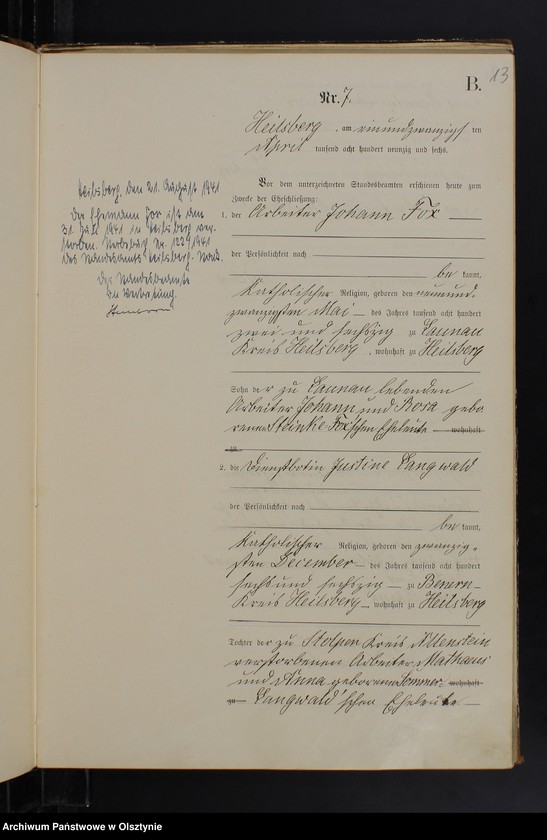 13
B.
Nr. 7.
Heilsberg, am einundzwanzigsten
April tausend acht hundert neunzig und sechs.
Vor dem unterzeichneten Standesbeamten erschienen heute zum
Zwecke der Eheschließung:
1. der Arbeiter Johann Fox
der Persönlichkeit nach
be kannt,
katholischer Religion, geboren den neunund-
zwanzigsten Mai des Jahres tausend acht hundert
zwei und sechszig zu Launau
Kreis Heilsberg, wohnhaft zu Heilsberg
Sohn der zu Launau lebenden
Arbeiter Johann und Rosa gebo
renen Steinke Fox'schen Eheleute wohnhaft
zu
2. die Dienstbotin Justine Langwald
der Persönlichkeit nach
be kannt,
katholischer Religion, geboren den zwanzig-
sten December des Jahres tausend acht hundert
sechs und sechszig zu Benern
Kreis Heilsberg, wohnhaft zu Heilsberg
Tochter der zu Stolpen Kreis Allenstein
verstorbenen Arbeiter Mathaus
und Anna geborenen Sommer wohnhaft
zu Langwald'schen Eheleute
Heilsberg, den 21. August 1941
Der Ehemann Fox ist am
31. Juli 1941 in Heilsberg ver-
storben. Nr. 122/1941
des Standesamts Heilsberg
Der Standesbeamte
In Vertretung.
Archiwum Państwowe w Olsztynie